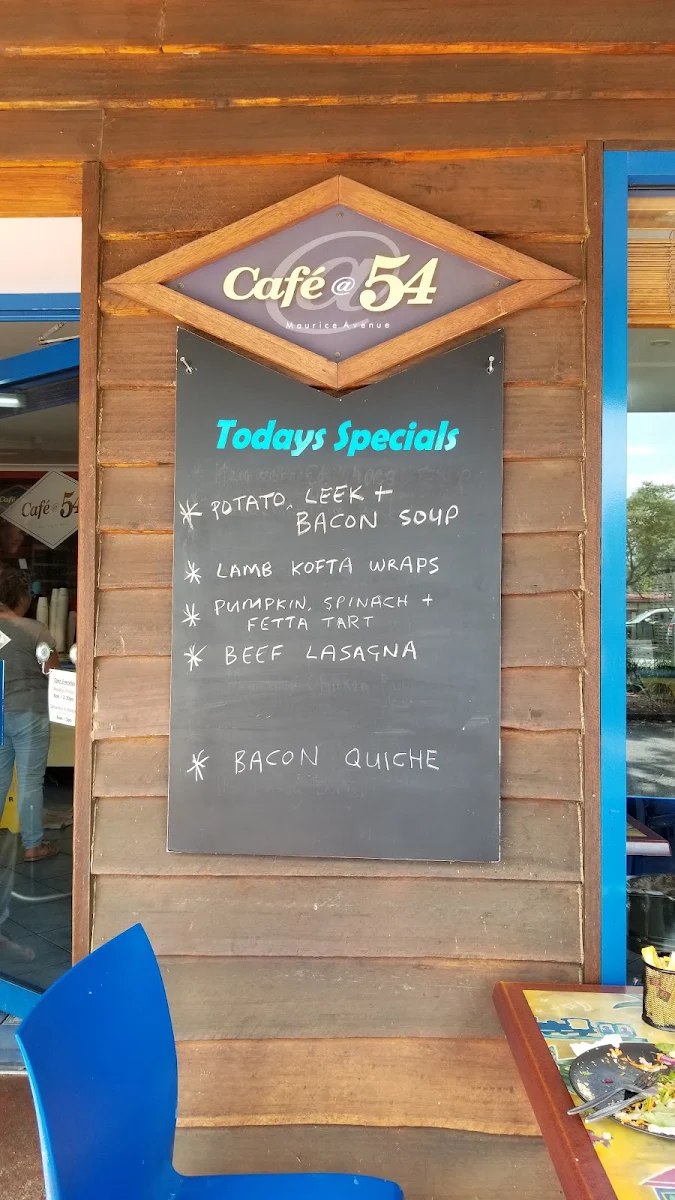 Café @ 54
Maurice Avenue
Todays Specials
* POTATO, LEEK +
BACON SOUP
* LAMB KOFTA WRAPS
* PUMPKIN, SPINACH +
FETTA TART
* BEEF LASAGNA
* BACON QUICHE
Café @ 54